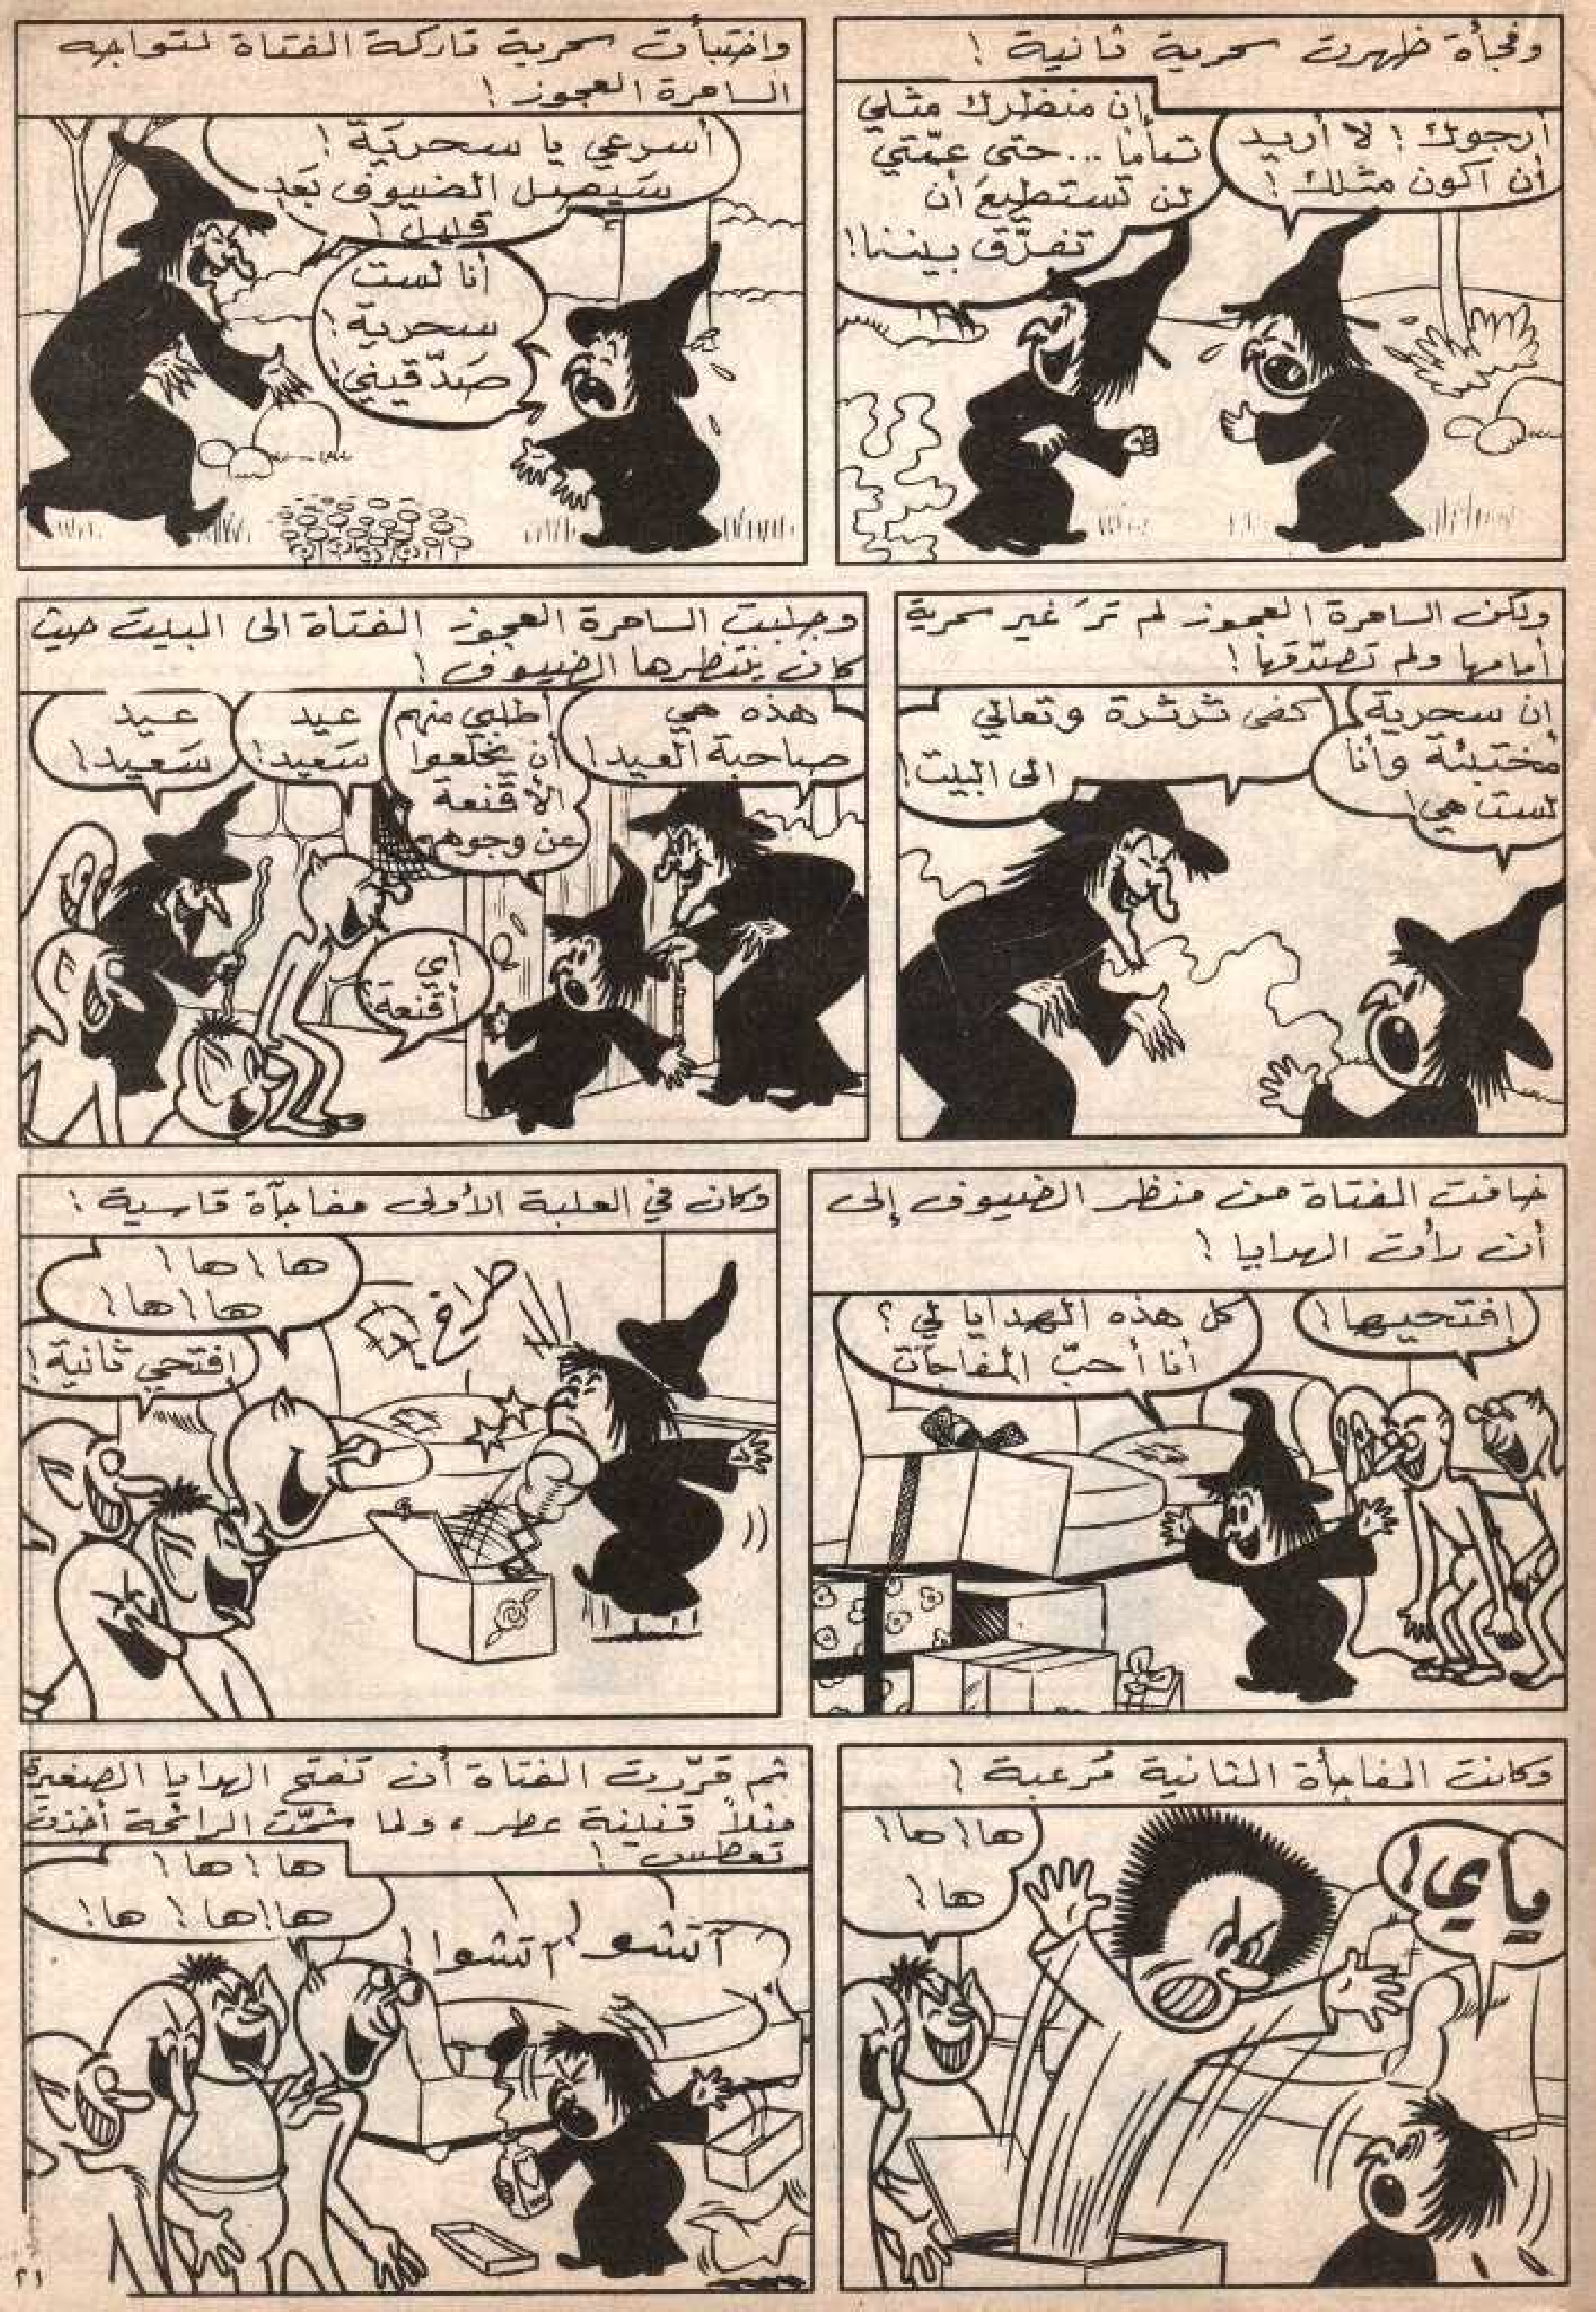 وفجأة ظهرت سحرية ثانية !
أرجوك ! لا أريد
أن أكون مثلك !
إن منظرك مثلي
تماماً ... حتى عمّتي
لن تستطيعَ أن
تفرّق بيننا !
واختبأت سحرية تاركة الفتاة لتواجه
الساحرة العجوز !
أسرعي يا سحريّة !
سَيصل الضيوف بَعد
قليل !
أنا لست
سحريّة !
صَدّقيني !
ولكن الساحرة العجوز لم ترَ غير سحرية
أمامها ولم تصدّقها !
إن سحرية
مختبئة وأنا
لست هي !
كفى ثرثرة وتعالي
الى البيت !
وجلبت الساحرة العجوز الفتاة الى البيت حيث
كان ينتظرها الضيوف !
هذه هي
صاحبة العيد !
أطلبي منهم
أن يخلعوا
الأقنعة
عن وجوههم
عيد
سَعيد !
عيد
سَعيد !
أي
أقنعة
خافت الفتاة من منظر الضيوف إلى
أن رأت الهدايا !
إفتحيها !
كل هذه الهدايا لي ؟
أنا أحبّ المفاجآت
وكان في العلبة الأولى مفاجأة قاسية :
طراق
ها ! ها !
ها ! ها !
إفتحي ثانية !
وكانت المفاجأة الثانية مُرعبة !
ياي !
ها ! ها !
ها !
ثم قرّرت الفتاة أن تفتح الهدايا الصغيرة
مثلاً قنينة عطر ، ولما شمّت الرائحة أخذت
تعطس !
ها ! ها !
ها ! ها ! ها !
آتشو آتشوا !
٢١